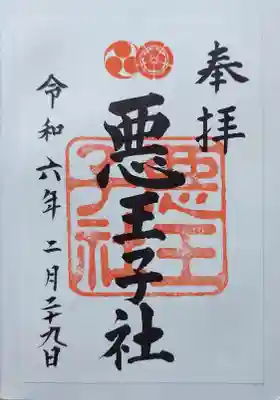 奉拝
悪王子社
悪王子社
令和六年 二月二十九日